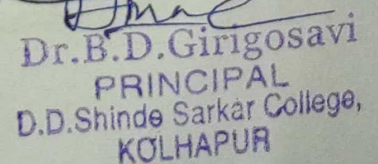 Dr.B.D.Girigosavi
PRINCIPAL
D.D.Shinde Sarkar College,
KOLHAPUR